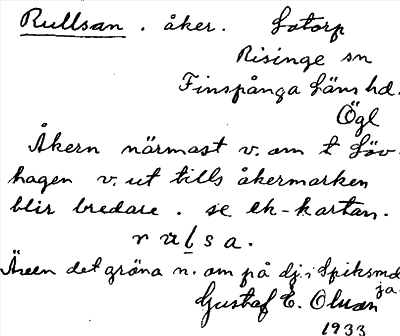 Rullsan . åker. Lotorp
Risinge sn
Finspånga läns hd.
Ögl
Åkern närmast v. om t Löv-
hagen v. ut tills åkermarken
blir bredare . se ek-kartan.
r u l s a .
Även det gröna n. om på dj. i Spiksmd
ja.
Gustaf E.
1933